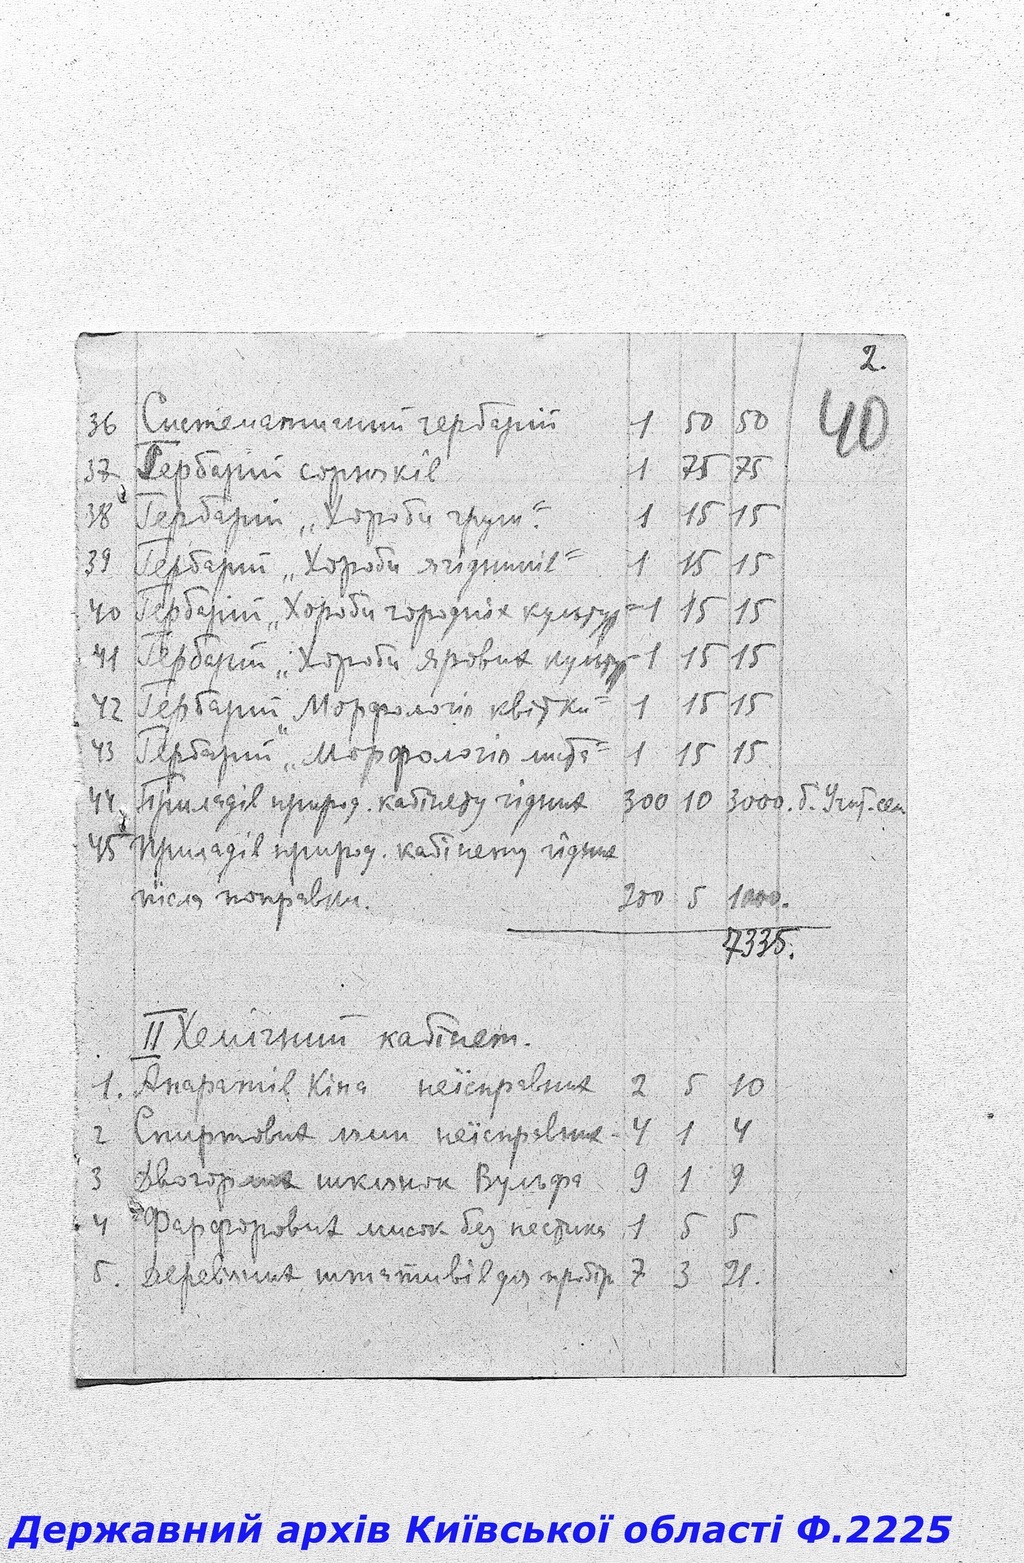 2.
40
36 Систематичний гербарій 1 50 50
37 Гербарій сорняків 1 75 75
38 Гербарій „Хороби груш“ 1 15 15
39 Гербарій „Хороби ягідників“ 1 15 15
40 Гербарій „Хороби городніх культур“ 1 15 15
41 Гербарій „Хороби ярових культур“ 1 15 15
42 Гербарій „Морфологія квітки“ 1 15 15
43 Гербарій „Морфологія листа“ 1 15 15
44 Приладів природ. кабінету гідних 300 10 3000. б. Учит. сем
45 Приладів природ. кабінету гідних
після поправки. 200 5 1000.
7335.
II Хемічний кабінет.
1. Апаратів Кіпа неїсправних 2 5 10
2 Спиртових ламп неїсправних 4 1 4
3 Двогорлих шклянок Вульфа 9 1 9
4 Фарфорових мисок без пестика 1 5 5
5. Деревяних штативів для пробір 7 3 21.
Державний архів Київської області Ф.2225